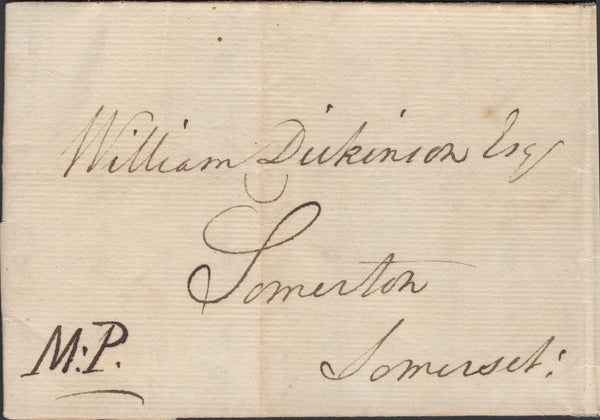 William Dickinson Esq
Somerton
Somerset:
M:P.